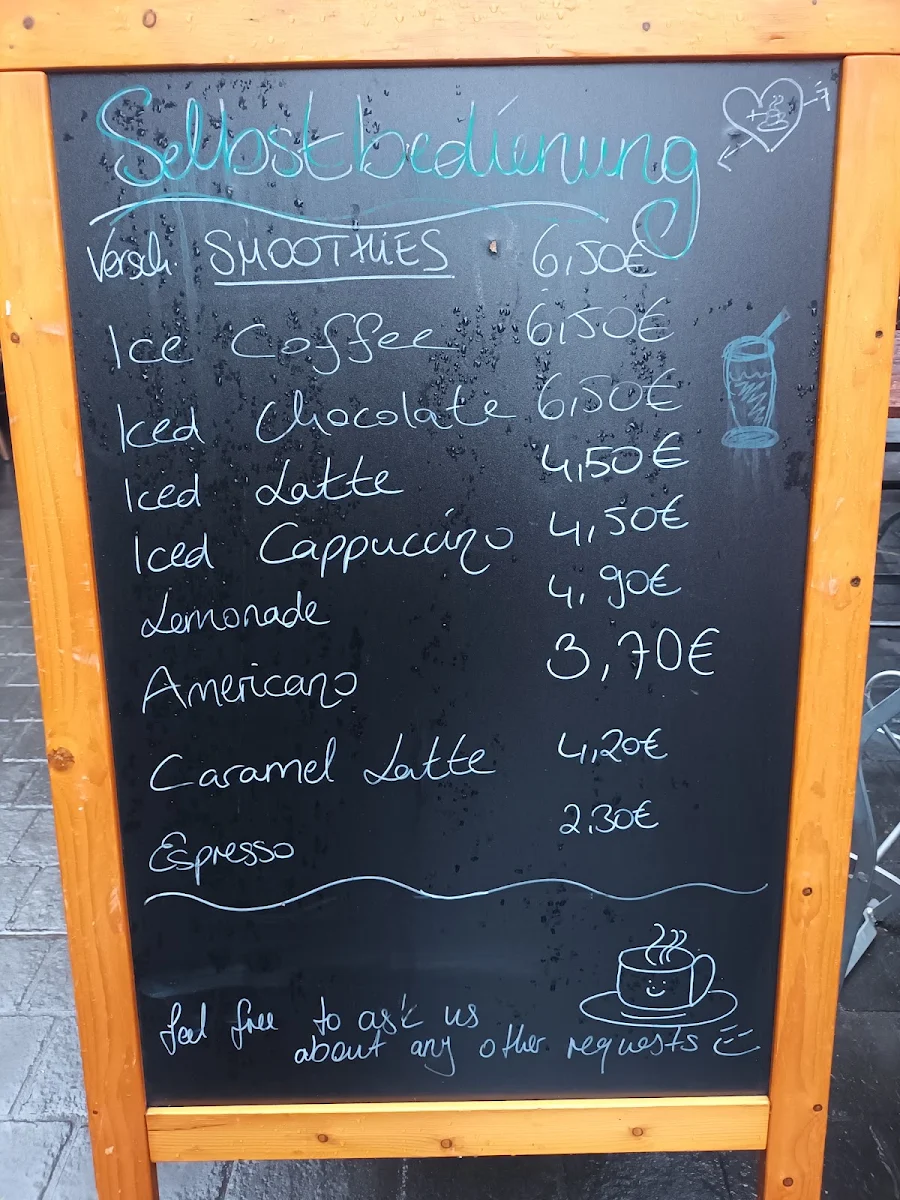 Selbstbedienung
Versch. SMOOTHIES 6,50€
Ice Coffee 6,50€
Iced Chocolate 6,50€
Iced Latte 4,50€
Iced Cappuccino 4,50€
Lemonade 4,90€
Americano 3,70€
Caramel Latte 4,20€
Espresso 2,30€
feel free to ask us
about any other requests